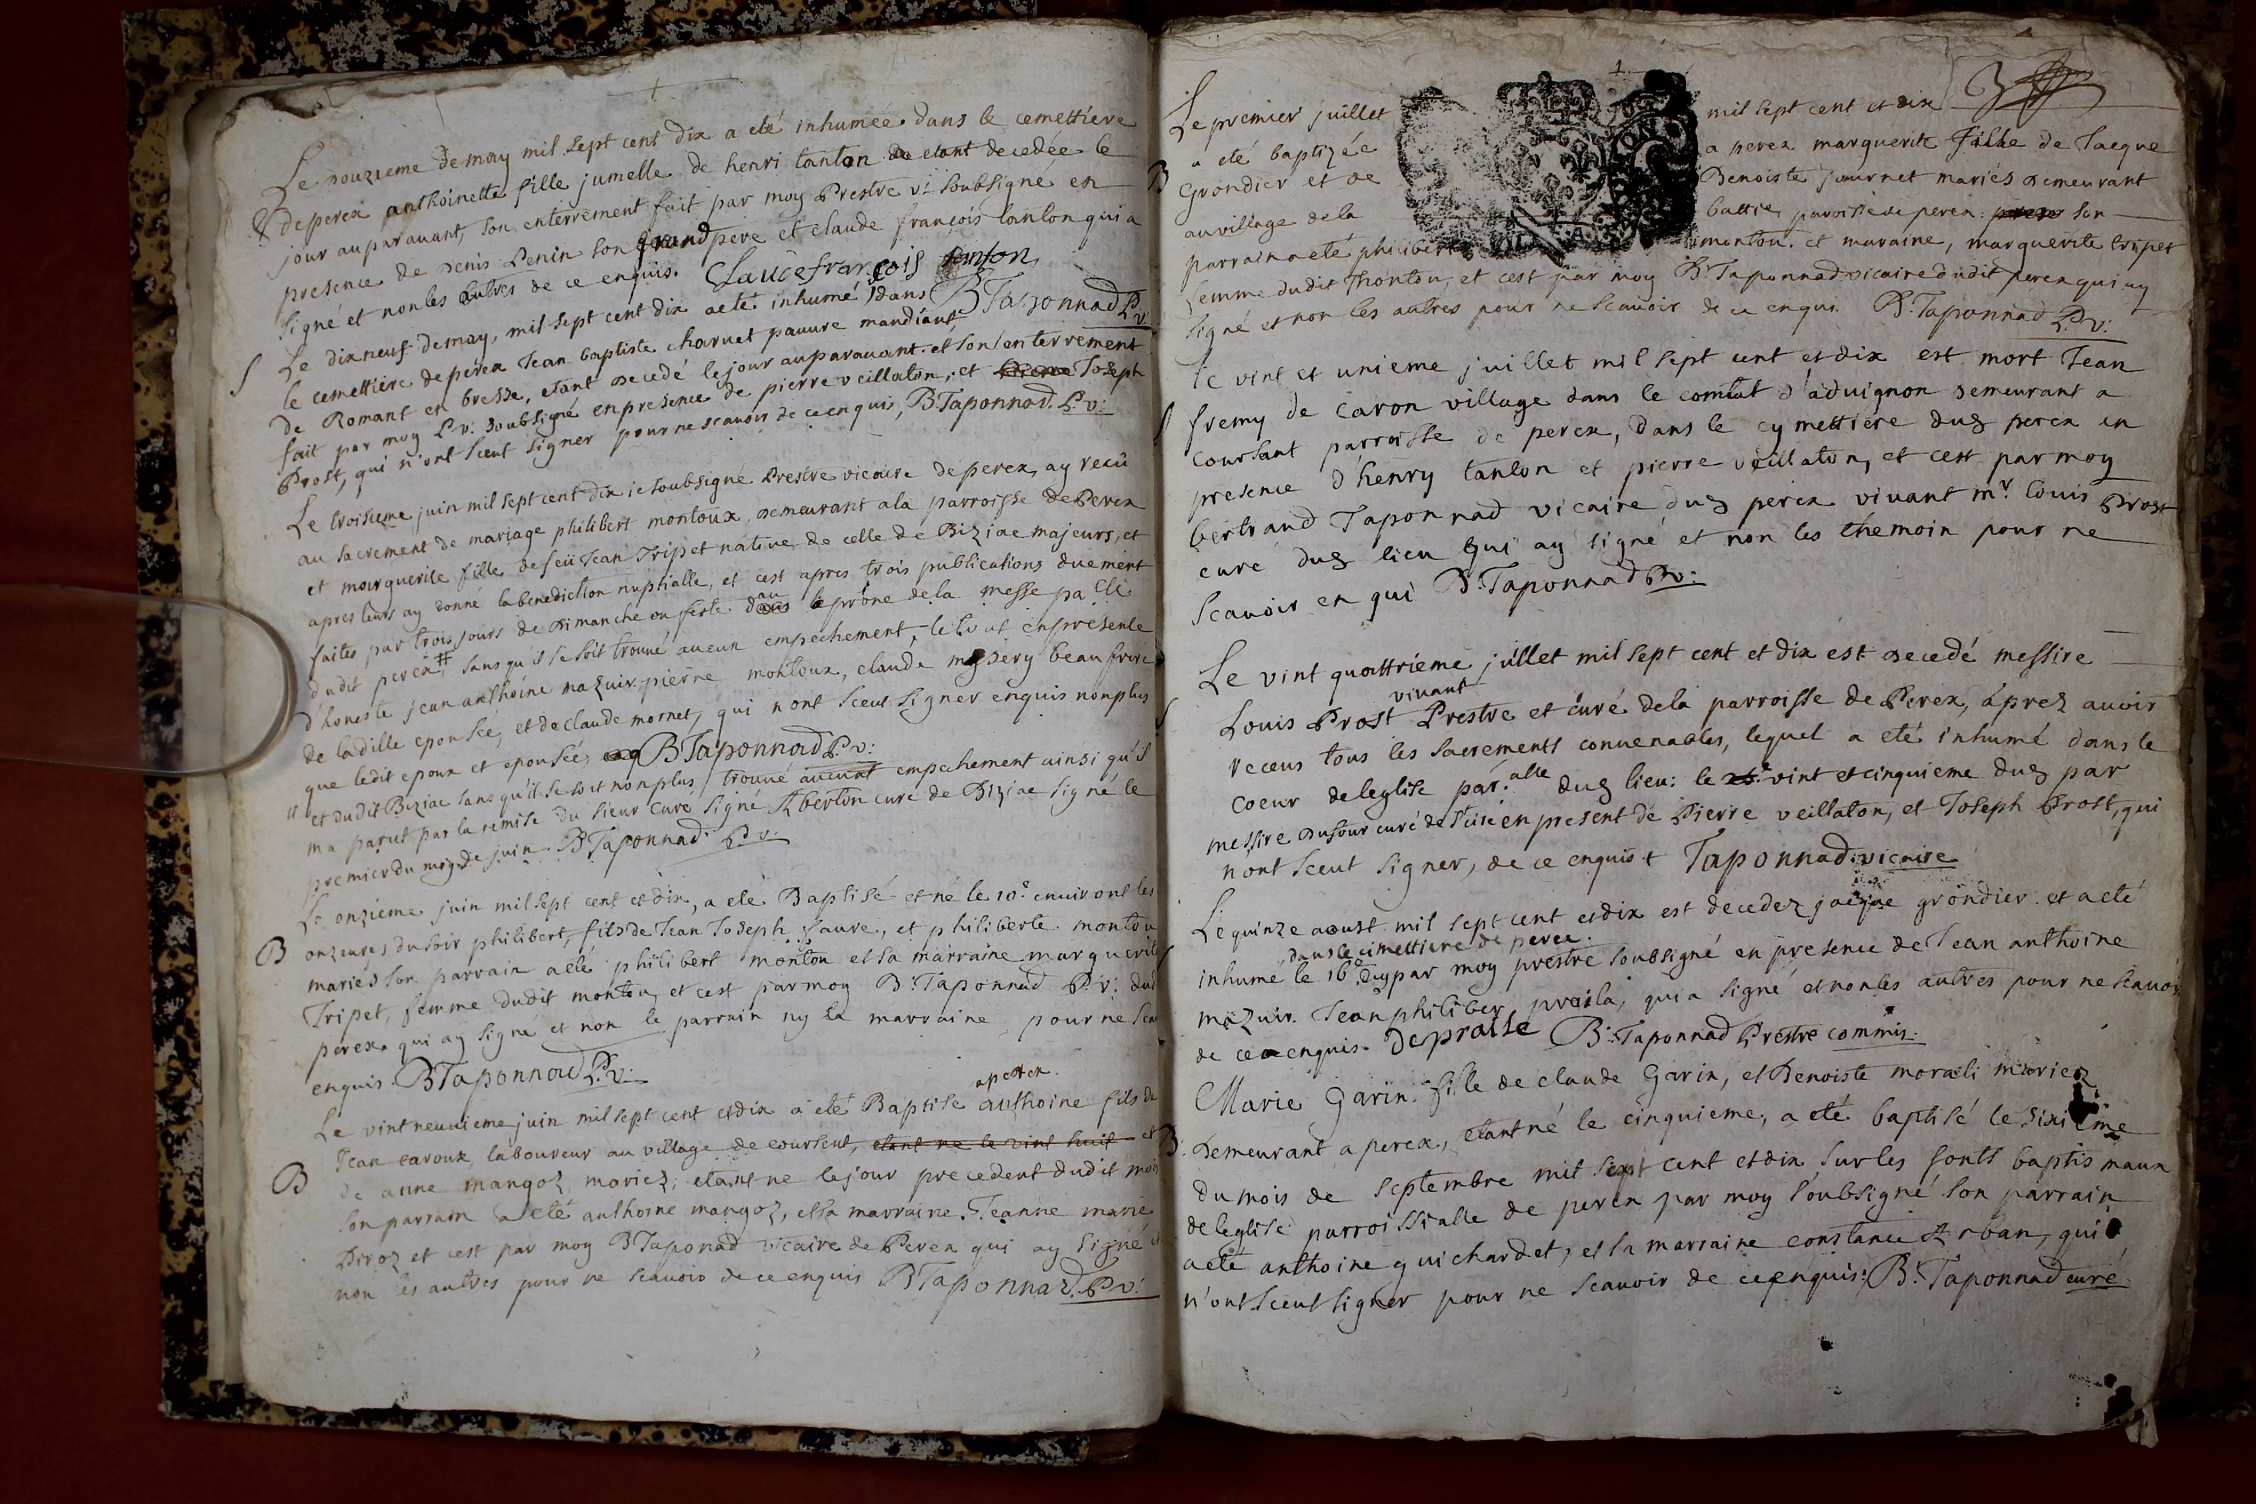 Le douzieme de may mil sept cent dix a eté inhumée dans le cemettiere
de perex anthoinette fille jumelle de henri tanton etant decedée le
jour auparavant, son enterrement fait par moy Prestre v. soubsigné en
presence de denis Penin son grand pere et claude françois tanton qui a
signé et non les autres de ce enquis. Claude françois tanton
B Taponnad P. v.
S Le dixneuf de may, mil sept cent dix a eté inhumé dans
le cemettiere de perex Jean baptiste charvet pauvre mandiant
de Romant en bresse, etant decedé le jour auparavant. et son enterrement
fait par moy P. v. soubsigné en presence de pierre veillaton, et Joseph
Prost, qui n'ont sceut signer pour ne scavoir de ce enquis, B. Taponnad. P. v:
Le troisieme juin mil sept cent dix ie soubsigné Prestre vicaire de perex, ay reçû
au sacrement de mariage philibert montoux, demeurant a la parroisse de Perex
et marguerite fille de feü Jean Tripet native de celle de Biziac majeurs, et
apres leurs ay donné la benediction nuptialle, et cest apres trois publications duement
faites par trois jours de dimanche ou feste au prône de la messe pa elle
dudit perex # sans qu'il se soit trouvé aucun empechement, le tout en presente
d'honeste jean anthoine mazuir pierre montoux, claude mysery beau frere
de ladille epousée, et de claude mornet, qui n ont sceut signer enquis non plus
que ledit epoux et epousée, B Taponnad P. v:
# et dudit Biziac sans qu'il se soit non plus trouvé aucunt empechement ainsi qu'il
m a parut par la remise du sieur curé signé Alberton curé de Biziac signé le
premier du moy de juin. B Taponnad. P v:
Le onzieme juin mil sept cent et dix, a eté Baptisé et né le 10.e environt les
B onzeures du soir philibert, fils de Jean Joseph favre, et philiberte montou
mariés son parrain a eté philibert montou et sa marraine marguerite
Tripet, femme dudit montou, et cest par moy B: Taponnad P. v: dud
perex. qui ay signé et non le parrain ny la marraine, pour ne sca
enquis. B Taponnad P. v:
a perex.
Le vint neuvieme juin mil sept cent et dix a eté Baptise anthoine fils de
Jean caroux laboureur au village de coursent, etant ne le vint huit et
B de anne mangoz mariez, etant ne le jour precedent dudit mois
son parrain a eté anthoine mangoz, et sa marraine. Jeanne marie
Diroz et cest par moy B Taponad vicaire de Perex qui ay signé et
non les autres pour ne scavoir de ce enquis B Taponnad. P v:
Le premier juillet mil sept cent et dix
a eté baptizée a perex marguerite fille de Jacque
B Grondier et de Benoiste journet mariés demeurant
au village de la battie, paroisse de perex: son
parrain a eté philibert montou. et maraine, marguerite tripet
femme dudit monton, et cest par moy B: Taponnad vicaire dudit perex qui ay
signé et non les autres pour ne scavoir de ce enquis B: Taponnad P. v:
le vint et unieme juillet mil sept cent et dix est mort Jean
S fremy de Caron village dans le comtat d'aduignon demeurant a
Coursant parroisse de perex, dans le cymettiere duz perex en
presence d'henry tanton et pierre veillaton, et cest par moy
bertrand Taponnad vicaire duz perex vivant mr. Louis Prost
curé duz lieu qui ay signé et non les themoin pour ne
scavoir en qui B: Taponnad P v:
Le vint quattrieme juillet mil sept cent et dix est decedé messire
vivant
S Louis Prost Prestre et curé de la parroisse de Perex, áprez avoir
receus tous les sacrements convenables, lequel a eté inhumé dans le
coeur de leglise par.alle duz lieu: le vint et cinquieme duz par
messire Dufour curé de en present de Pierre veillaton, et Joseph Prost, qui
n'ont sceut signer, de ce enquis + Taponnad. vicaire
Le quinze aoust mil sept cent et dix est decedez jacque grondier et a eté
dans le cimettiere de perex.
inhumé le 16. duz par moy prestre soubsigné en presence de Jean anthoine
mazuir. Jean philiber prasla, qui a signé et non les autres pour ne scavoir
de ce enquis. Depralle B: Taponnad Prestre commis.
Marie Garin. fille de claude Garin, et Benoiste moraeli mariez
B. Demeurant a perex, etant né le cinquieme, a eté baptisé le sixieme
du mois de septembre mil sept cent et dix sur les fonts baptismaux
de leglise parroissialle de perex par moy soubsigné son parrain
a eté anthoine guichardet, et sa marraine constance, qui
n'ont sceut signer pour ne scavoir de ce enquis: B. Taponnad curé